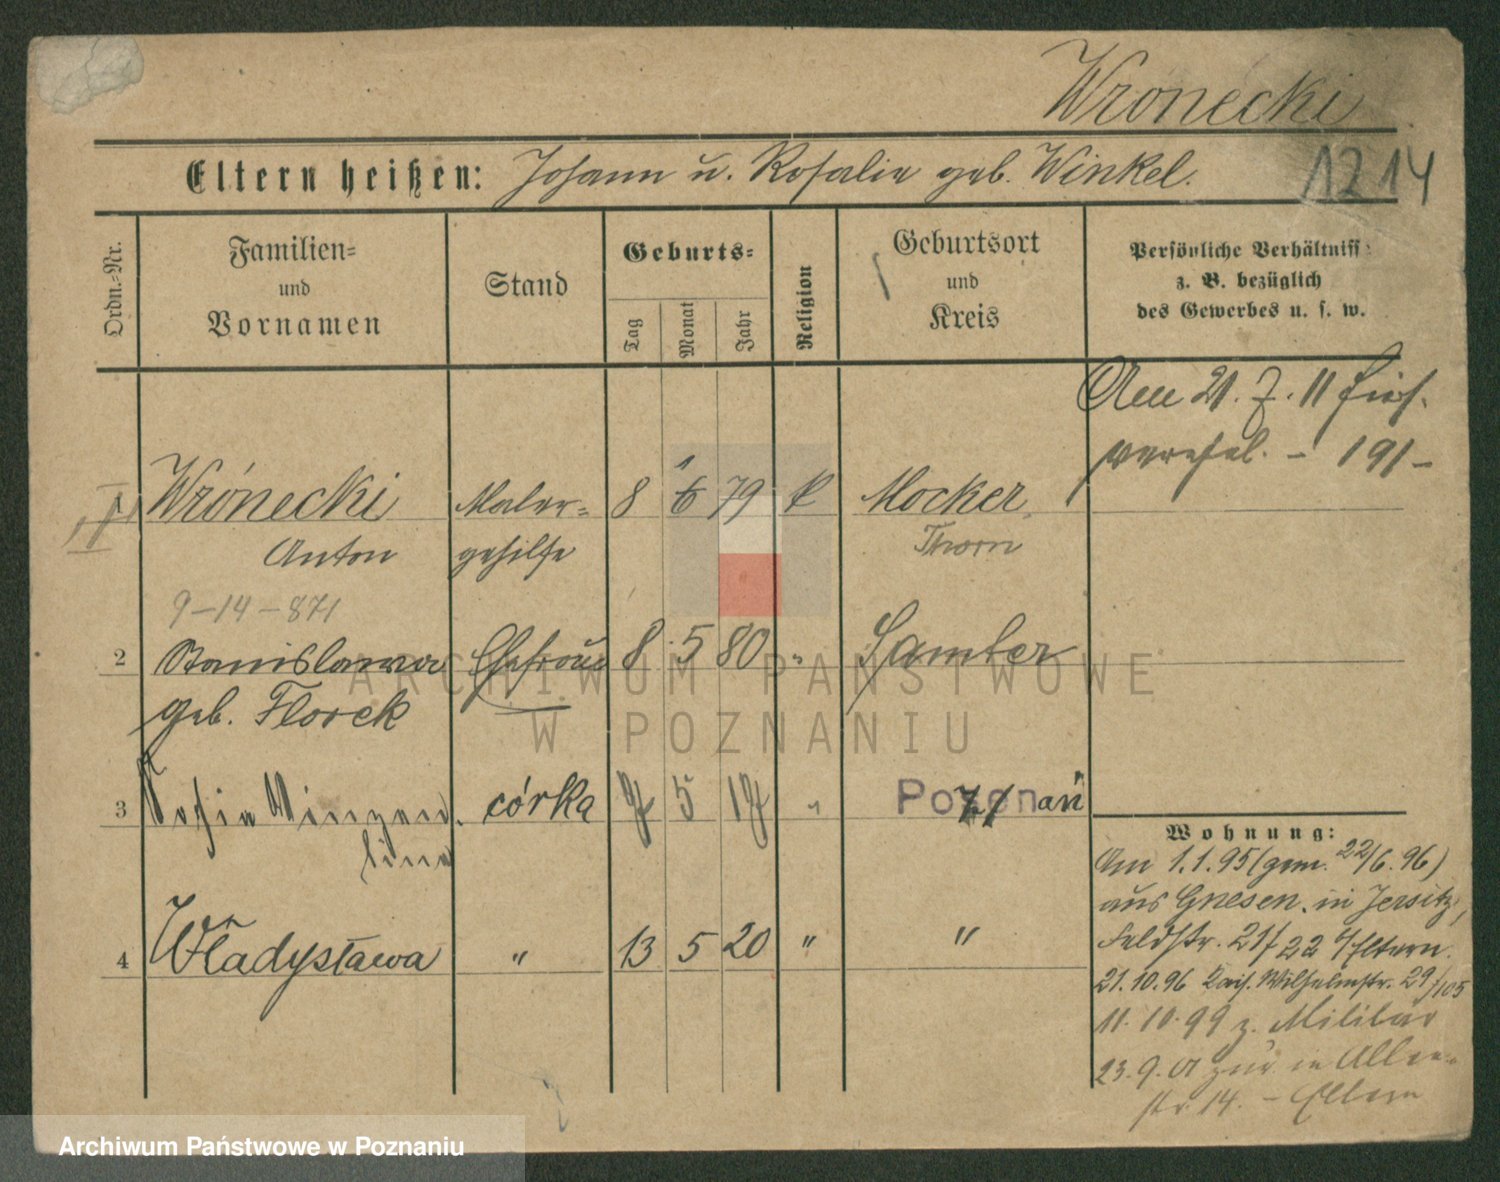 Wrónecki
Eltern heißen: Johann u. Rosalie geb. Winkel.
1214
Ordn.-Nr.
Familien-
und
Vornamen
Stand
Geburts-
Tag
Monat
Jahr
Religion
Geburtsort
und
Kreis
Persönliche Verhältniss
z. B. bezüglich
des Gewerbes u. s. w.
Am 21. 7. 11
- 191-
Wrónecki Maler- 8 6 79 k Mocker
1
Anton gehilfe Thorn
9-14-871
2 Stanislawa Ehefrau 8 5 80 " Samter
geb. Florek
3 córka 5 " Poznań
4 Władysława " 13 5 20 " "
Wohnung:
Am 1.1.95 (gem. 22/6. 96)
aus Gnesen. in Jersitz,
Feldstr. 21/22 Eltern.
21.10.96 Kais. Wilhelmstr. 29/105
11.10.99 z. Militär
23.9.01 zur. in
str. 14. - Eltern
ARCHIWUM PAŃSTWOWE
W POZNANIU
Archiwum Państwowe w Poznaniu